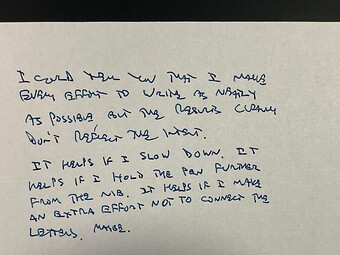 I COULD TELL YOU THAT I MAKE
EVERY EFFORT TO WRITE AS NEATLY
AS POSSIBLE BUT THE RESULTS CLEARLY
DON'T REFLECT THE INTENT.
IT HELPS IF I SLOW DOWN. IT
HELPS IF I HOLD THE PEN FURTHER
FROM THE NIB. IT HELPS IF I MAKE
AN EXTRA EFFORT NOT TO CONNECT THE
LETTERS. MAYBE.